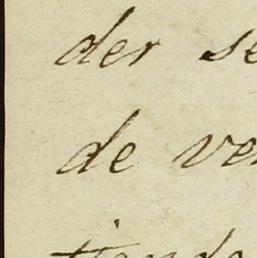 der se
de ve
tiende